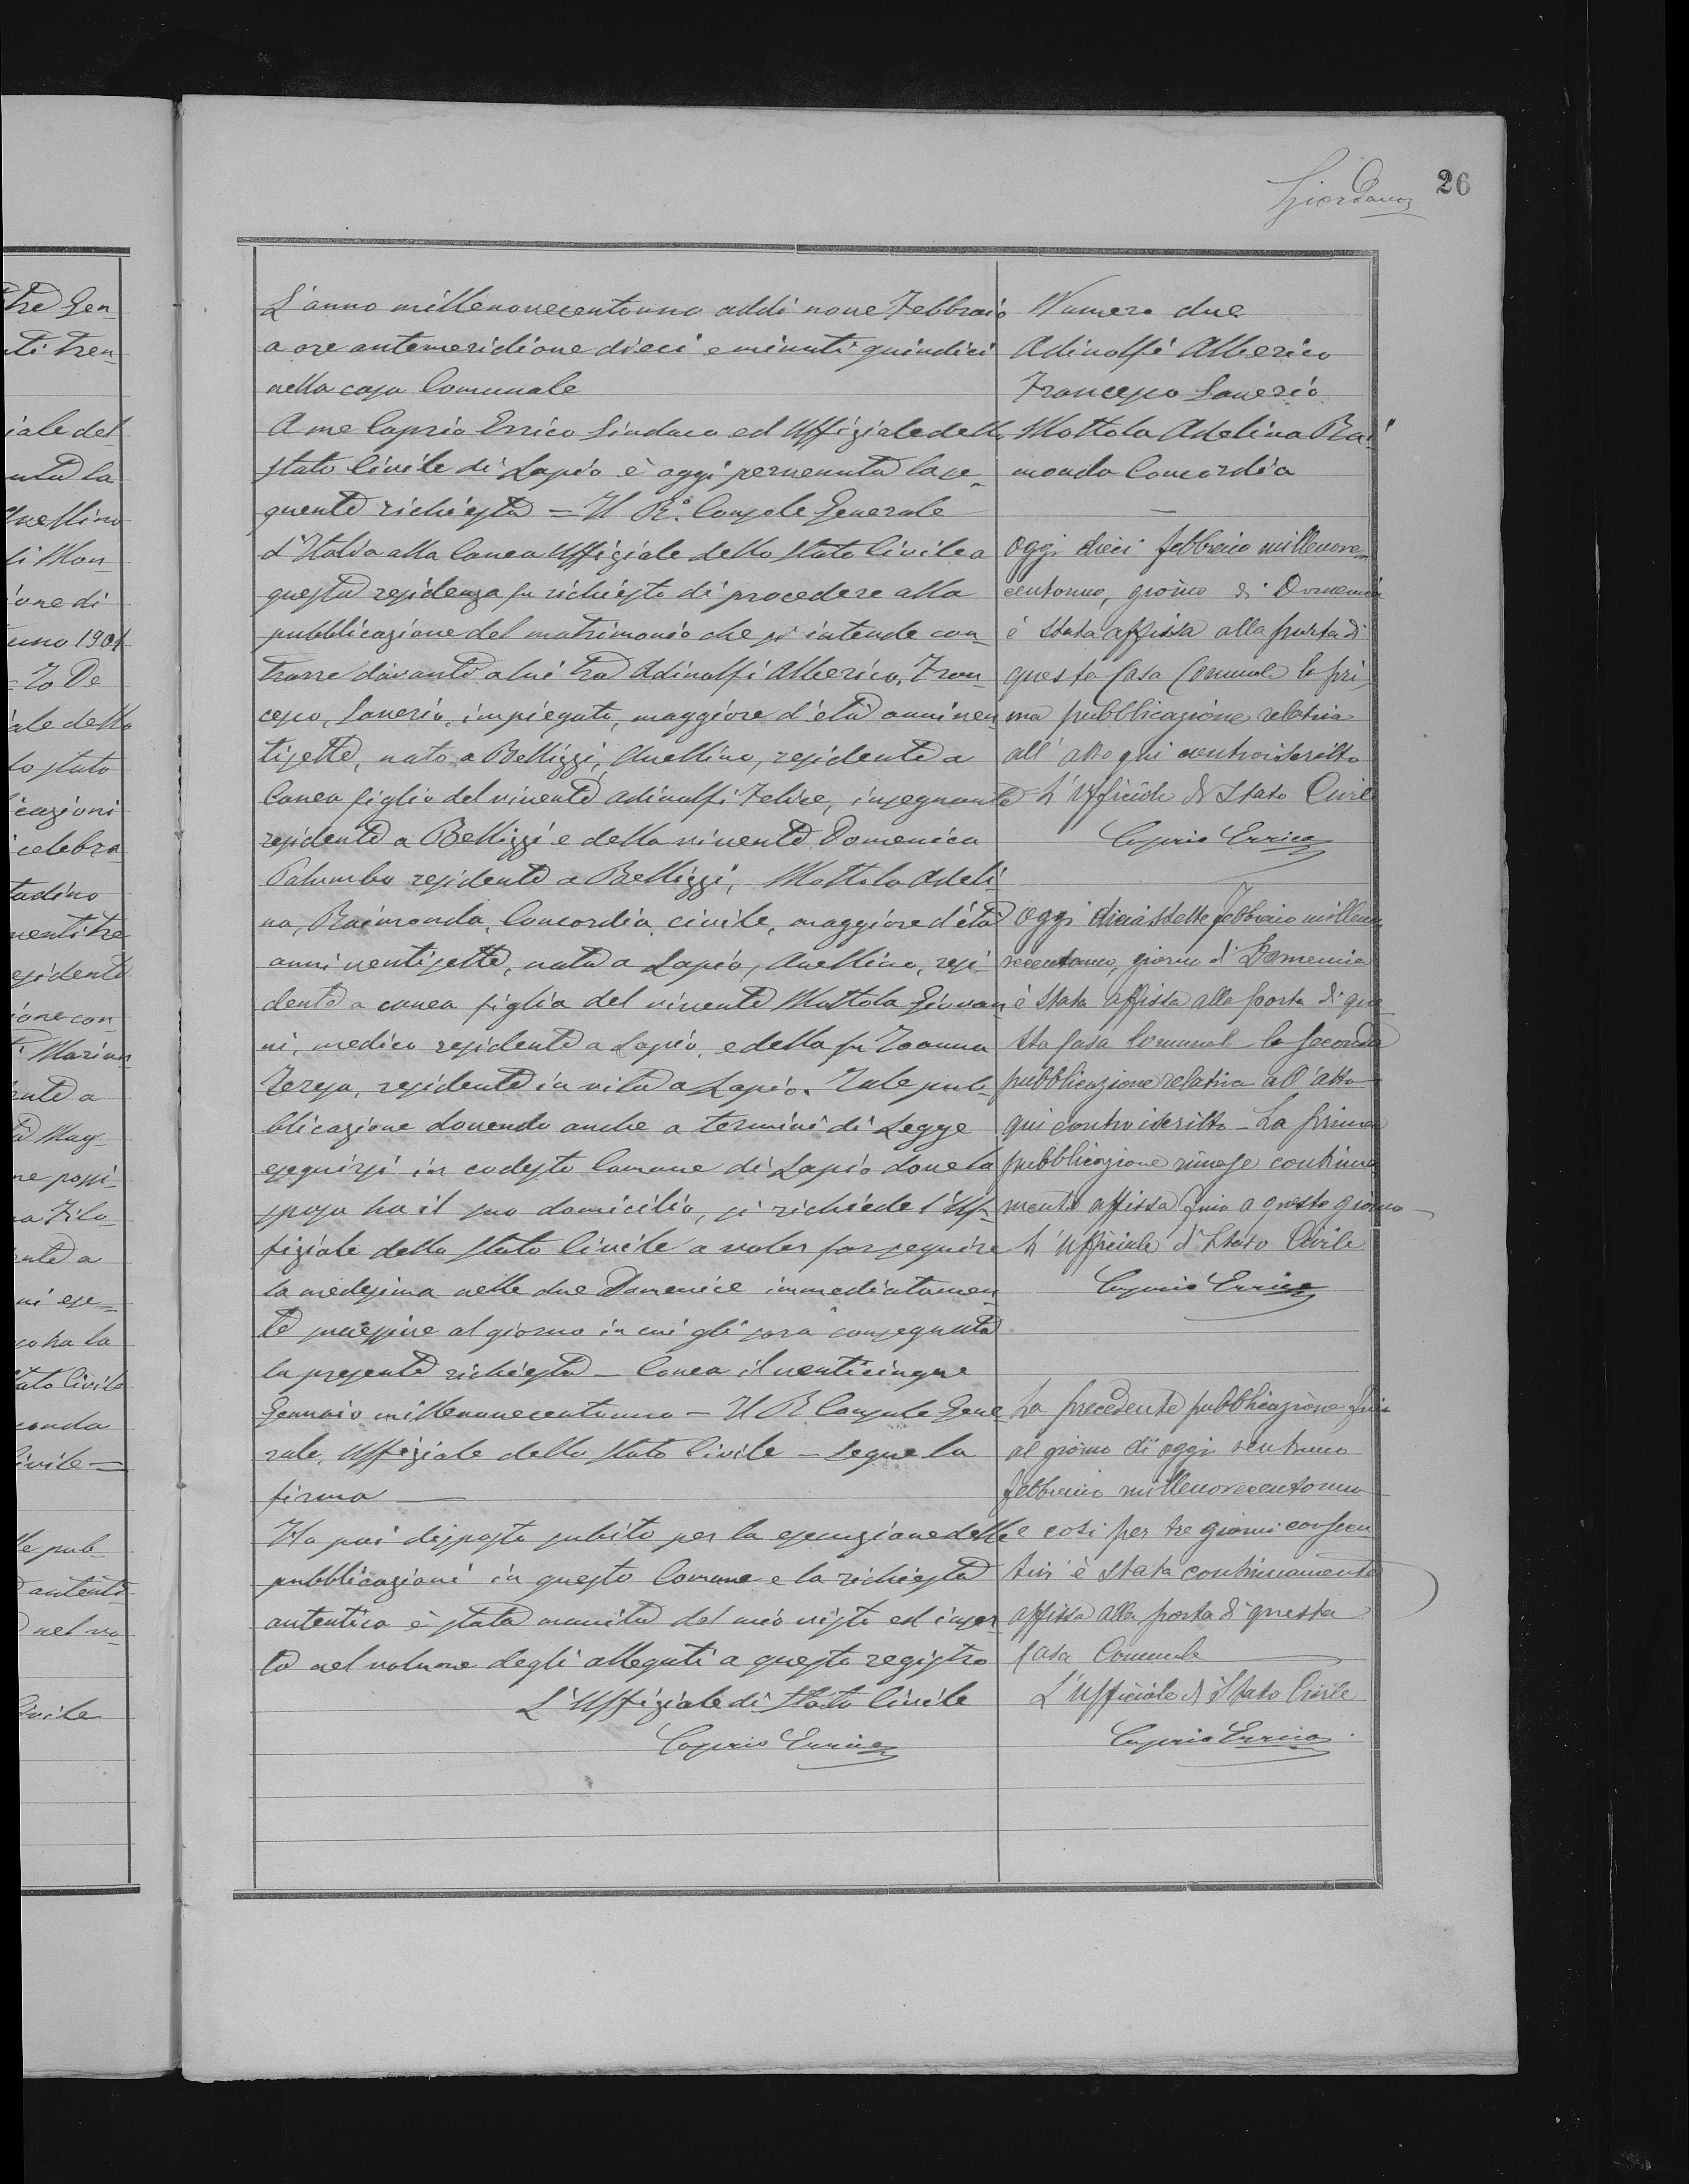 26
Giordano
L'anno millenovecentouno addì nove Febbraio
a ore antemeridione dieci e minuti quindici
nella casa Comunale
A me Caprio Errico Sindaco ed Uffiziale dello
stato Civile di Lapio è oggi pervenuta la se-
guente richiesta = Il R.º Console Generale
d'Italia alla Canea Uffiziale dello Stato Civile a
questa residenza fu richiesto di procedere alla
pubblicazione del matrimonio che si intende con-
trarre davanti a lui tra Adinolfi Alberico, Fran-
cesco, Saverio, impiegato, maggiore d'età anni ven-
tisette, nato a Bellizzi, Avellino, residente a
Canea figlio del vivente Adinolfi Felice, insegnante
residente a Bellizzi e della vivente Domenica
Palumbo residente a Bellizzi, Mottola Adeli-
na, Raimonda, Concordia, civile, maggiore d'età
anni ventisette, nata a Lapio, Avellino, resi-
dente a canea figlia del vivente Mottola Giovan-
ni, medico residente a Lapio, e della fu Ioanna
Teresa, residente in vita a Lapio. Tale pub-
blicazione dovendo anche a termini di Legge
eseguirsi in codesto Comune di Lapio dove la
sposa ha il suo domicilio, si richiede l'Uf-
fiziale dello Stato Civile a voler far seguire
la medesima nelle due Domenice immediatamen-
te successive al giorno in cui gli sarà consegnata
la presente richiesta — Canea il venticinque
Gennaio millenovecentouno — Il R. Console Gene
rale, Uffiziale dello Stato Civile — Segue la
firma —
Ho poi disposto subito per la esecuzione delle
pubblicazioni in questo Comune e la richiesta
autentica è stata munita del mio visto ed inser
ta nel volume degli allegati a questo registro
L'Uffiziale di Stato Civile
Caprio Errico
Numero due
Adinolfi Alberico
Francesco Saverio
Mottola Adelina Rai
monda Concordia
—
Oggi dieci febbraio millenove
centouno, giorno di Domenica
è stata affissa alla porta di
questa Casa Comunale la pri
ma pubblicazione relativa
all'atto qui controiscritto
L'Ufficiale di Stato Civile
Caprio Errico
Oggi diciassette febbraio milleno
vecentouno, giorno di Domenica
è stata affissa alla porta di que
sta Casa Comunale la seconda
pubblicazione relativa all'atto
qui controiscritto — La prima
pubblicazione rimase continua
mente affissa fino a questo giorno
L'Ufficiale di Stato Civile
Caprio Errico
La precedente pubblicazione fino
al giorno di oggi ventuno
febbraio millenovecentouno
e così per tre giorni consecu
tivi è stata continuamente
affissa alla porta di questa
Casa Comunale
L'Ufficiale di Stato Civile
Caprio Errico
tre Gen-
nti tren-
iale del
nuta la
Avellino
di Mon-
ione di
uno 1901
= Io De
iale dello
lo stato
icazioni
celebra
tadino
ventitre
esidente
ione con-
Marian
ente a
Mag-
ne possi-
a Filo-
ente a
ni ese-
sa ha la
tato Civile
conda
Civile =
lle pub-
autenti
nel vo-
Civile